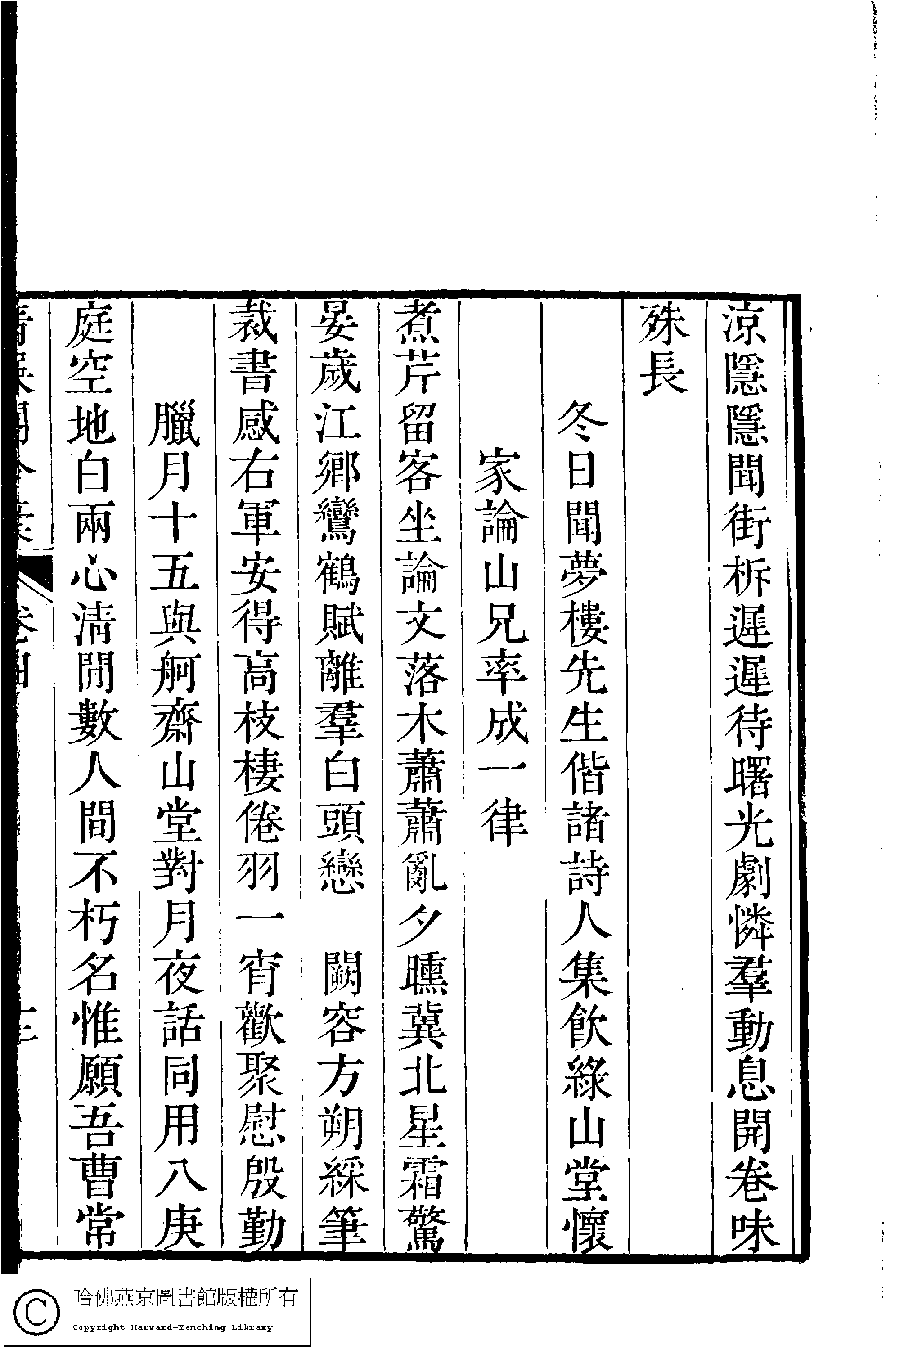 涼隱隱聞街柝遲遲待曙光劇憐羣動息開卷味
殊長
冬日聞夢樓先生偕諸詩人集飲綠山堂懷
家論山兄率成一律
煮芹留客坐論文落木蕭蕭亂夕曛冀北星霜驚
晏歲江鄉鸞鶴賦離羣白頭戀　闕容方朔綵筆
裁書感右軍安得高枝棲倦羽一宵歡聚慰殷勤
臘月十五與舸齋山堂對月夜話同用八庚
庭空地白兩心清閒數人間不朽名惟願吾曹常
卷四
哈佛燕京圖書館版權所有
Copyright Harvard-Yenching Library